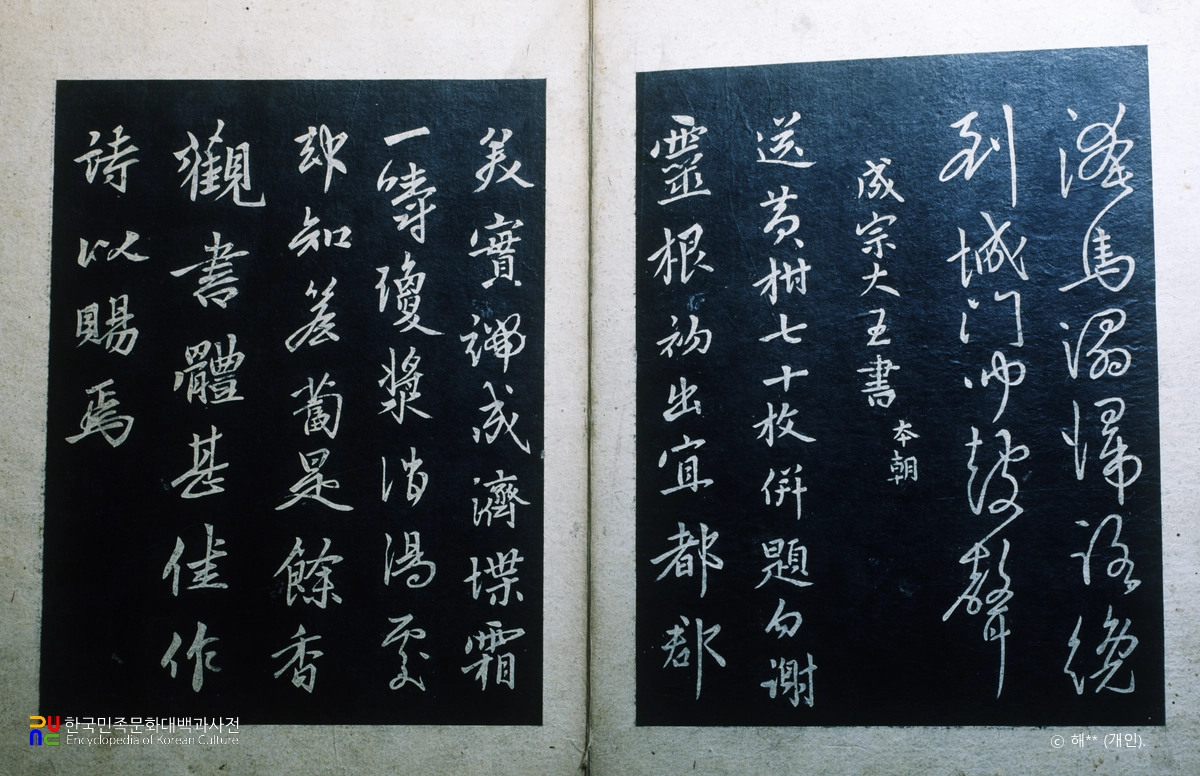 馬溺歸路繞
到城門聞鼓聲
成宗大王書
本朝
送黃柑七十枚併題勿謝
靈根初出宜都郡
美實譁成濟堞霜
一嚼瓊漿消渴處
却知簷蔔是餘香
觀書體甚佳作
詩以賜焉
한국민족문화대백과사전
Encyclopedia of Korean Culture
ⓒ 해** (개인).